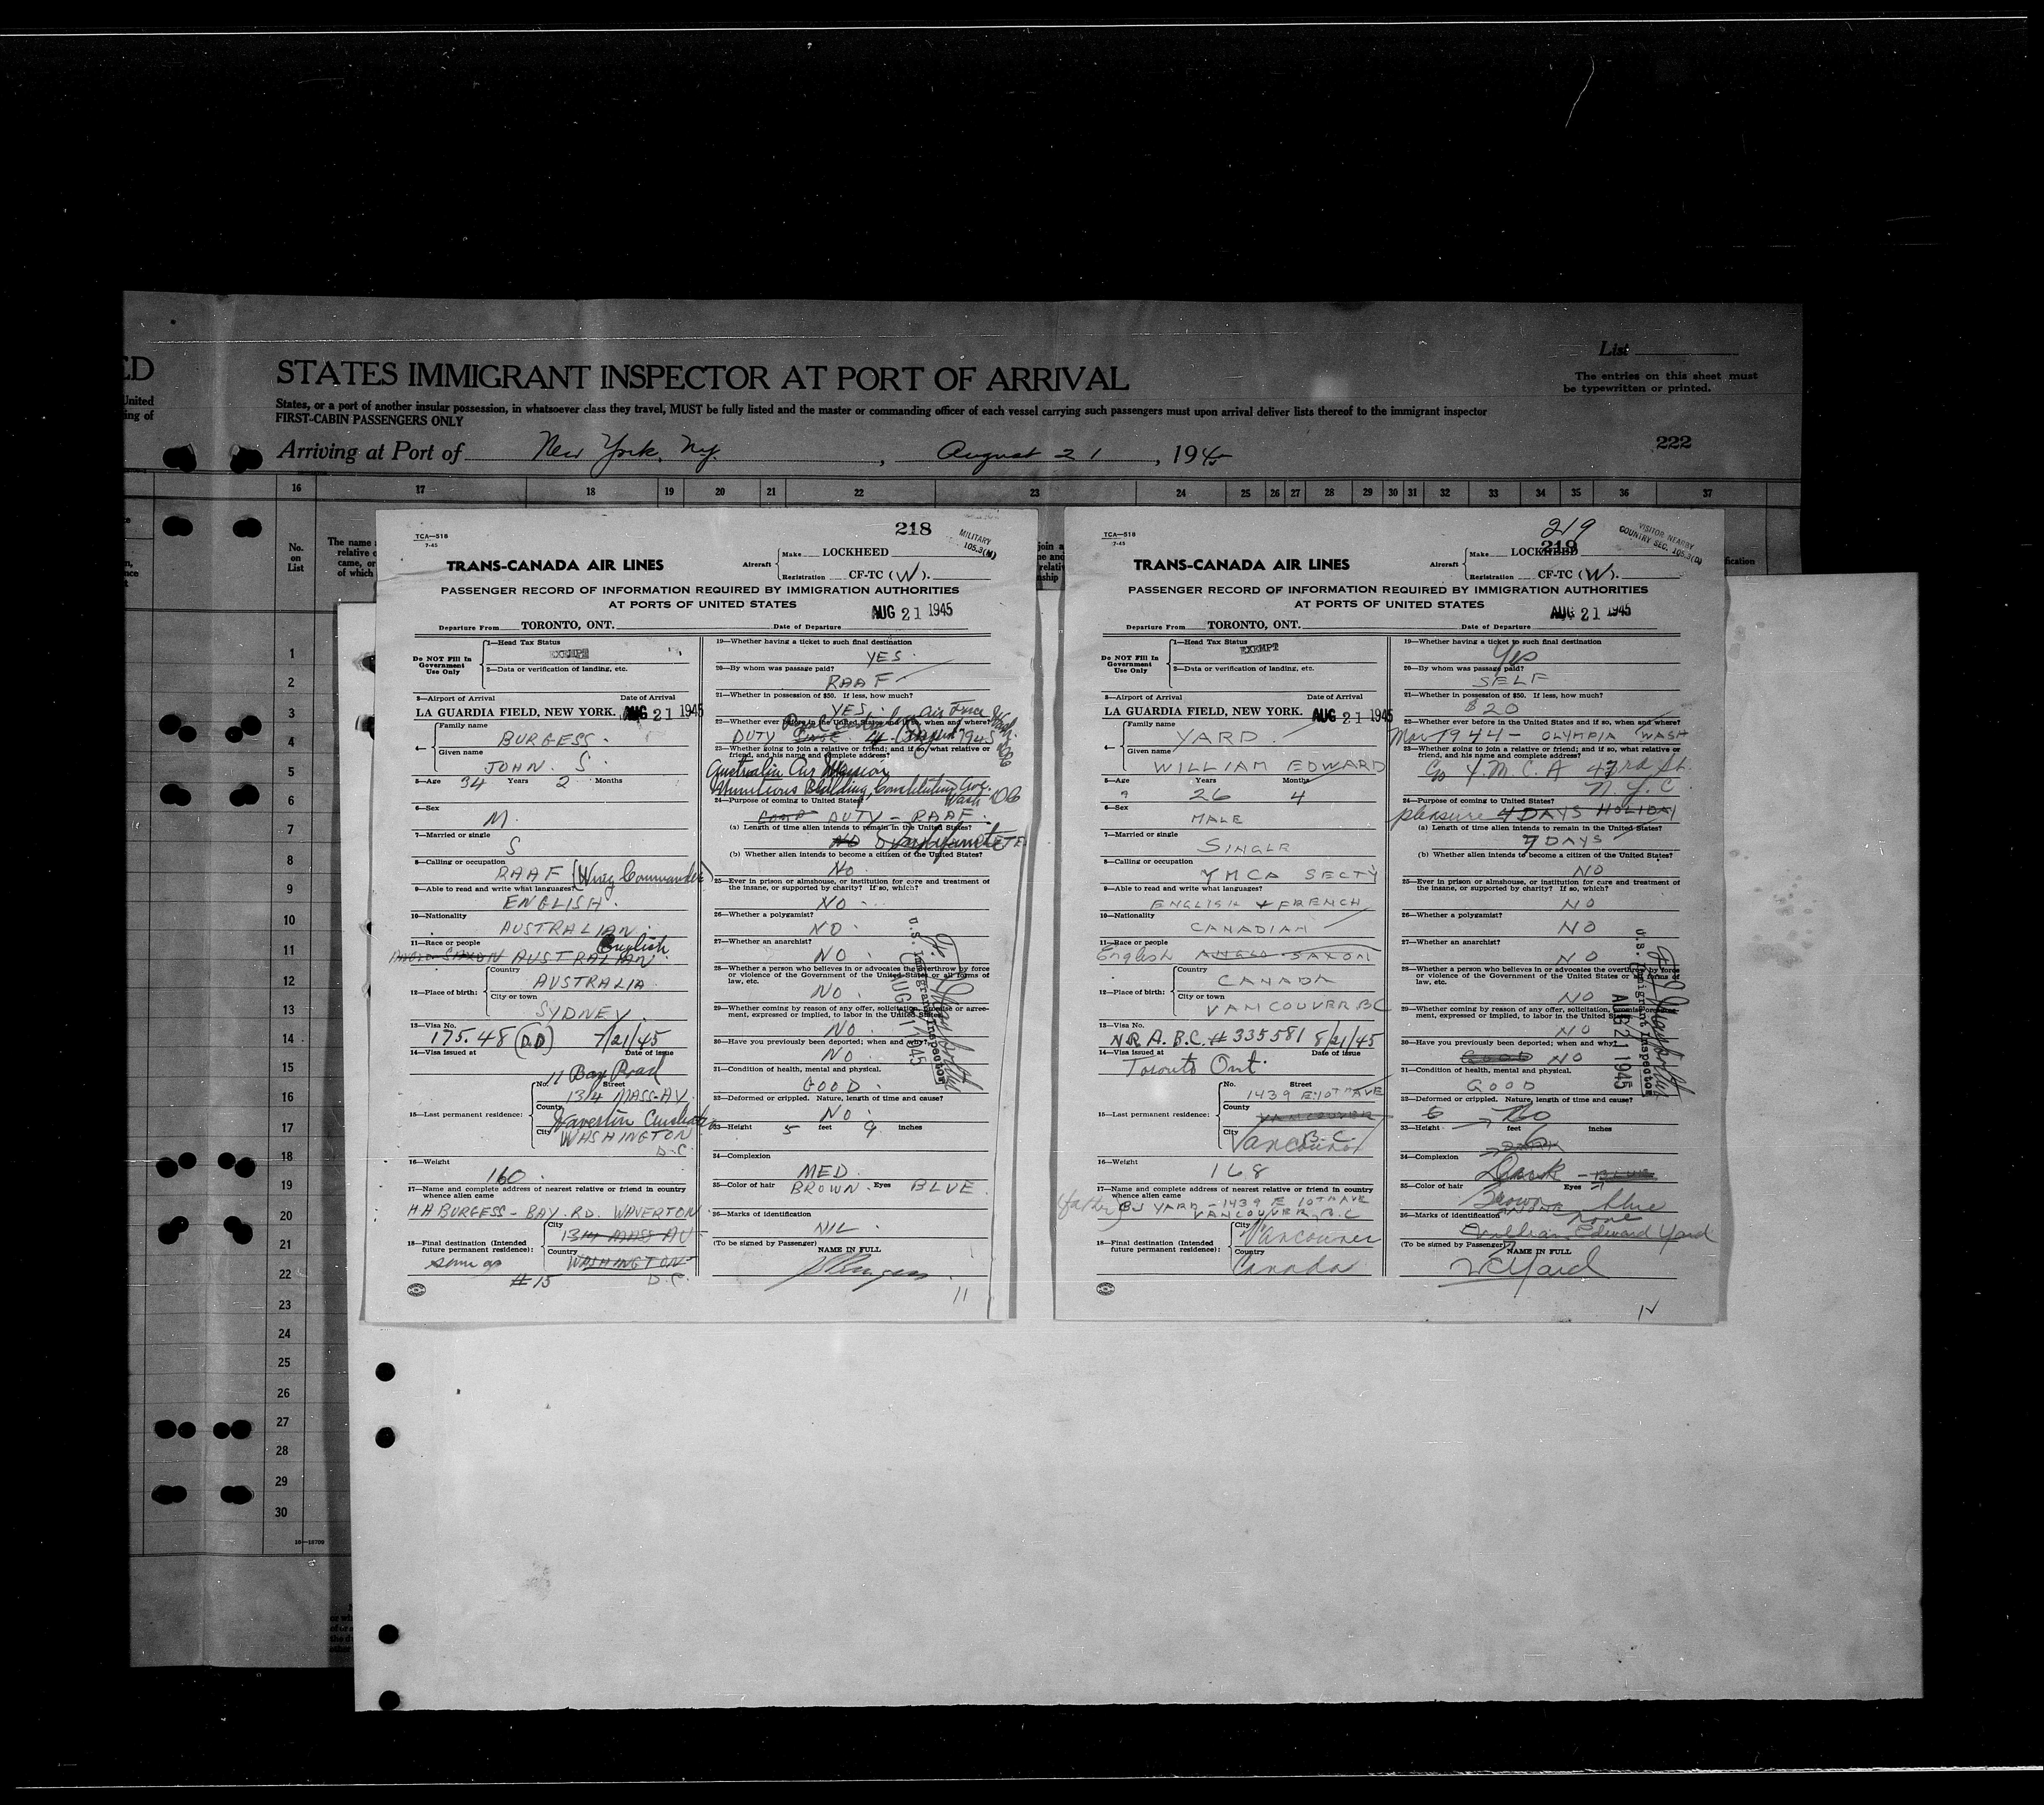 ED
United
ing of
STATES IMMIGRANT INSPECTOR AT PORT OF ARRIVAL
List
The entries on this sheet must
be typewritten or printed.
States, or a port of another insular possession, in whatsoever class they travel, MUST be fully listed and the master or commanding officer of each vessel carrying such passengers must upon arrival deliver lists thereof to the immigrant inspector
FIRST-CABIN PASSENGERS ONLY
Arriving at Port of New York, N.Y. , August 21 , 1945
222
16 17 18 19 20 21 22 23 24 25 26 27 28 29 30 31 32 33 34 35 36 37
No.
on
List
The name
relative
came, or
of which
1
2
3
4
5
6
7
8
9
10
11
12
13
14
15
16
17
18
19
20
21
22
23
24
25
26
27
28
29
30
TCA—518
7-45
218
MILITARY
105.3(M)
TRANS-CANADA AIR LINES
Aircraft
Make LOCKHEED
Registration CF-TC (W).
PASSENGER RECORD OF INFORMATION REQUIRED BY IMMIGRATION AUTHORITIES
AT PORTS OF UNITED STATES
AUG 21 1945
Departure From TORONTO, ONT. Date of Departure
Do NOT Fill In
Government
Use Only
1—Head Tax Status
EXEMPT
2—Data or verification of landing, etc.
3—Airport of Arrival Date of Arrival
LA GUARDIA FIELD, NEW YORK. AUG 21 1945
4—
Family name
BURGESS.
Given name
JOHN. S.
5—Age 34 Years 2 Months
6—Sex
M.
7—Married or single
S
8—Calling or occupation
RAAF (Wing Commander)
9—Able to read and write what languages?
ENGLISH.
10—Nationality
AUSTRALIAN.
11—Race or people
English
AUSTRALIAN.
12—Place of birth:
Country
AUSTRALIA
City or town
SYDNEY.
13—Visa No.
175.48 (DD) 7/21/45
14—Visa issued at Date of issue
11 Bay Road
15—Last permanent residence:
No. Street
1314 MASS-AV.
County
Waverton
City
WASHINGTON
D.C.
16—Weight
160.
17—Name and complete address of nearest relative or friend in country
whence alien came
H.A BURGESS - BAY. RD. WAVERTON
18—Final destination (Intended
future permanent residence):
same as
City
1314 MASS AV
Country
WASHINGTON
D.C.
#15
19—Whether having a ticket to such final destination
YES.
20—By whom was passage paid?
RAAF
21—Whether in possession of $50. If less, how much?
YES.
22—Whether ever before in the United States and if so, when and where?
DUTY
23—Whether going to join a relative or friend; and if so, what relative or
friend, and his name and complete address?
Australia Air Mission
Munitions Building, Constitution Ave.
Wash DC
24—Purpose of coming to United States?
DUTY - RAAF.
(a) Length of time alien intends to remain in the United States?
(b) Whether alien intends to become a citizen of the United States?
NO.
25—Ever in prison or almshouse, or institution for care and treatment of
the insane, or supported by charity? If so, which?
NO.
26—Whether a polygamist?
NO.
27—Whether an anarchist?
NO.
28—Whether a person who believes in or advocates the overthrow by force
or violence of the Government of the United States or all forms of
law, etc.
NO.
29—Whether coming by reason of any offer, solicitation, promise or agree-
ment, expressed or implied, to labor in the United States
NO.
30—Have you previously been deported; when and why?
NO.
31—Condition of health, mental and physical.
GOOD.
32—Deformed or crippled. Nature, length of time and cause?
NO.
33—Height 5 feet 9 inches
34—Complexion
MED.
35—Color of hair BROWN. Eyes BLUE.
36—Marks of identification
NIL.
(To be signed by Passenger)
NAME IN FULL
11
U.S. Immigrant Inspector
AUG 21 1945
TCA—518
7-45
219
219
VISITOR NEARBY
COUNTRY SEC. 105.3(D)
TRANS-CANADA AIR LINES
Aircraft
Make LOCKHEED
Registration CF-TC (W).
PASSENGER RECORD OF INFORMATION REQUIRED BY IMMIGRATION AUTHORITIES
AT PORTS OF UNITED STATES
AUG 21 1945
Departure From TORONTO, ONT. Date of Departure
Do NOT Fill In
Government
Use Only
1—Head Tax Status
EXEMPT
2—Data or verification of landing, etc.
3—Airport of Arrival Date of Arrival
LA GUARDIA FIELD, NEW YORK. AUG 21 1945
4—
Family name
YARD.
Given name
WILLIAM EDWARD
5—Age 26 Years 4 Months
6—Sex
MALE
7—Married or single
SINGLE
8—Calling or occupation
YMCA SECTY
9—Able to read and write what languages?
ENGLISH & FRENCH
10—Nationality
CANADIAN
11—Race or people
English ANGLO SAXON
12—Place of birth:
Country
CANADA
City or town
VANCOUVER BC
13—Visa No.
NR A.B.C. #335581 8/21/45
14—Visa issued at Date of issue
Toronto Ont.
15—Last permanent residence:
No. Street
1439 E. 10TH AVE
County
VANCOUVER
City
Vancouver B.C.
16—Weight
168
17—Name and complete address of nearest relative or friend in country
whence alien came
(father) BJ YARD - 1439 E 10TH AVE
VANCOUVER, B.C
18—Final destination (Intended
future permanent residence):
City
Vancouver
Country
Canada
19—Whether having a ticket to such final destination
Yes
20—By whom was passage paid?
SELF
21—Whether in possession of $50. If less, how much?
$20
22—Whether ever before in the United States and if so, when and where?
Mar 1944 - OLYMPIA WASH
23—Whether going to join a relative or friend; and if so, what relative or
friend, and his name and complete address?
Co Y.M.C.A 43rd St.
N.Y.C.
24—Purpose of coming to United States?
pleasure 4 DAYS HOLIDAY
(a) Length of time alien intends to remain in the United States?
7 DAYS
(b) Whether alien intends to become a citizen of the United States?
NO
25—Ever in prison or almshouse, or institution for care and treatment of
the insane, or supported by charity? If so, which?
NO
26—Whether a polygamist?
NO
27—Whether an anarchist?
NO
28—Whether a person who believes in or advocates the overthrow by force
or violence of the Government of the United States or all forms of
law, etc.
NO
29—Whether coming by reason of any offer, solicitation, promise or agree-
ment, expressed or implied, to labor in the United States
NO
30—Have you previously been deported; when and why?
NO
31—Condition of health, mental and physical.
GOOD
32—Deformed or crippled. Nature, length of time and cause?
No
33—Height 6 feet inches
34—Complexion
Dark
35—Color of hair Brown Eyes blue
36—Marks of identification none
William Edward Yard
(To be signed by Passenger)
NAME IN FULL
WEYard
U.S. Immigrant Inspector
AUG 21 1945
16—18709